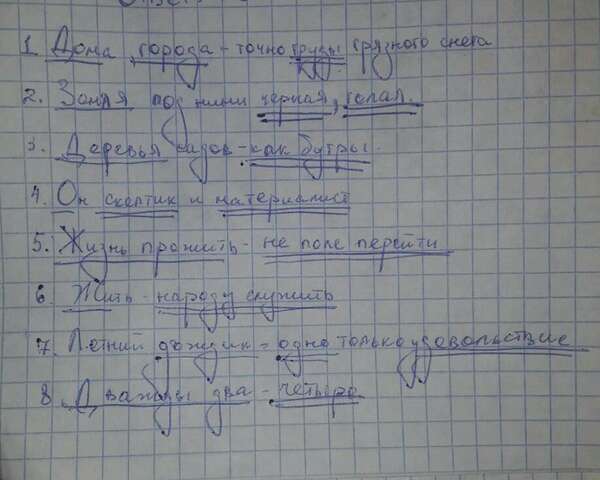 1. Дома города - точно грузы грязного снега
2. Земля под ними черная, теплая.
3. Деревья садов - как бугры.
4. Он скептик и материалист
5. Жизнь прожить - не поле перейти
6. Жить - народу служить
7. Летний дождик - одно только удовольствие
8. Дважды два - четыре